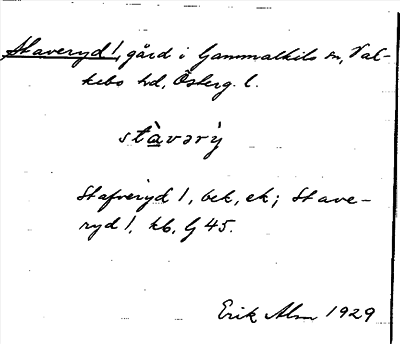 Staveryd 1, gård i Gammalkils sn, Val-
kebo hd, Österg. l.
stàvərỳ
Stafveryd 1, bek, ek; Stave-
ryd 1, kb, G 45.
Erik Alm 1929